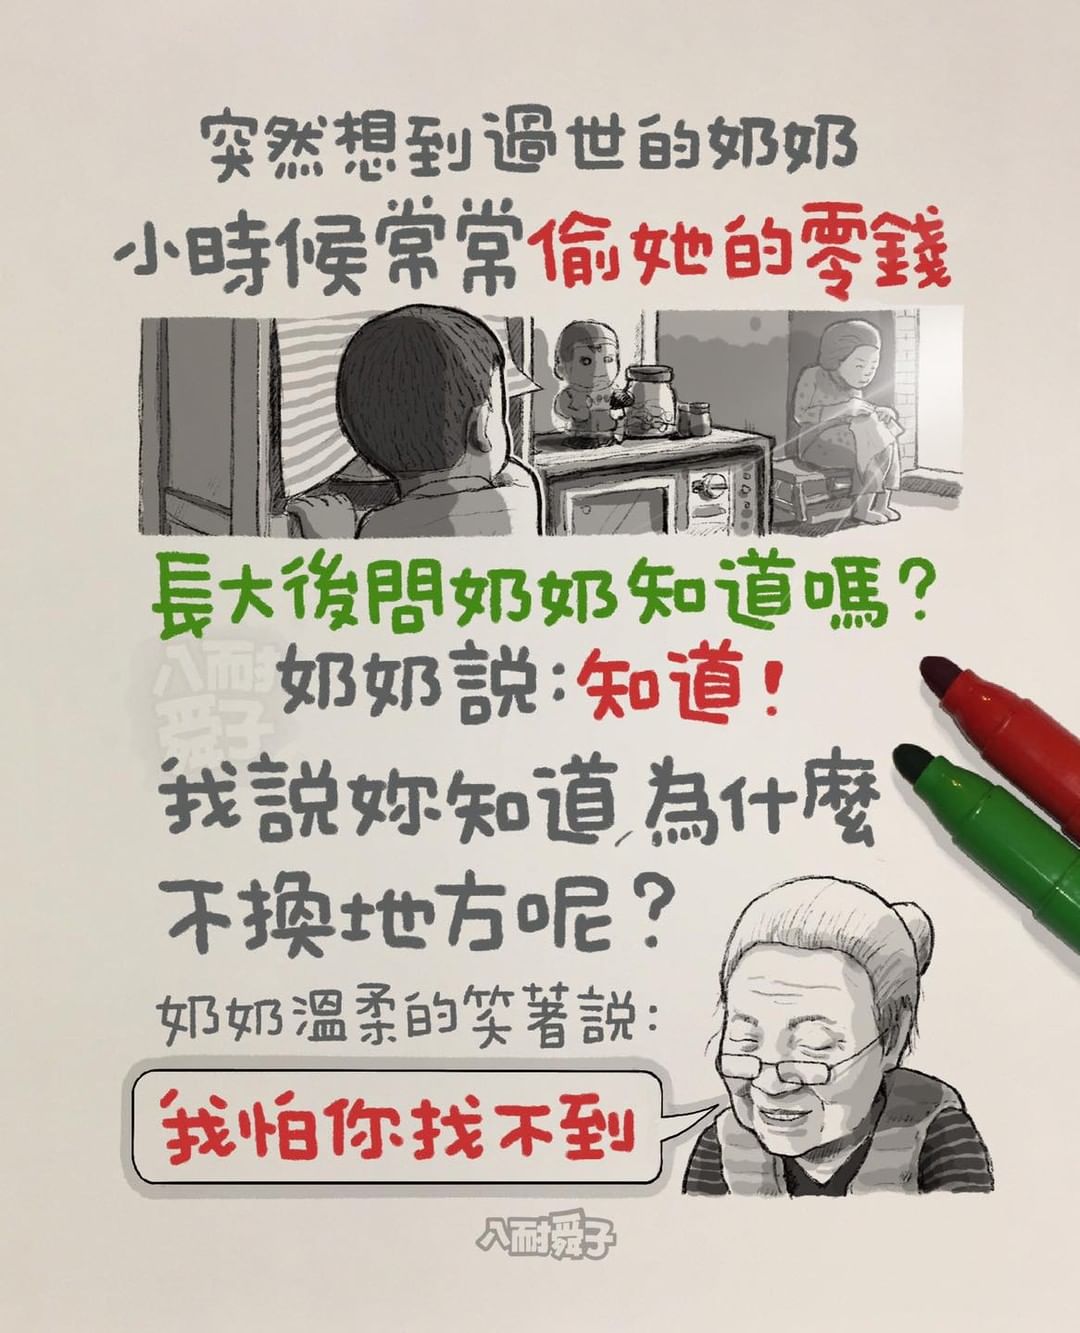 突然想到過世的奶奶
小時候常常偷她的零錢
長大後問奶奶知道嗎?
奶奶說:知道!
八耐
舜子
我說妳知道,為什麼
不換地方呢?
奶奶溫柔的笑著說:
我怕你找不到
八耐舜子